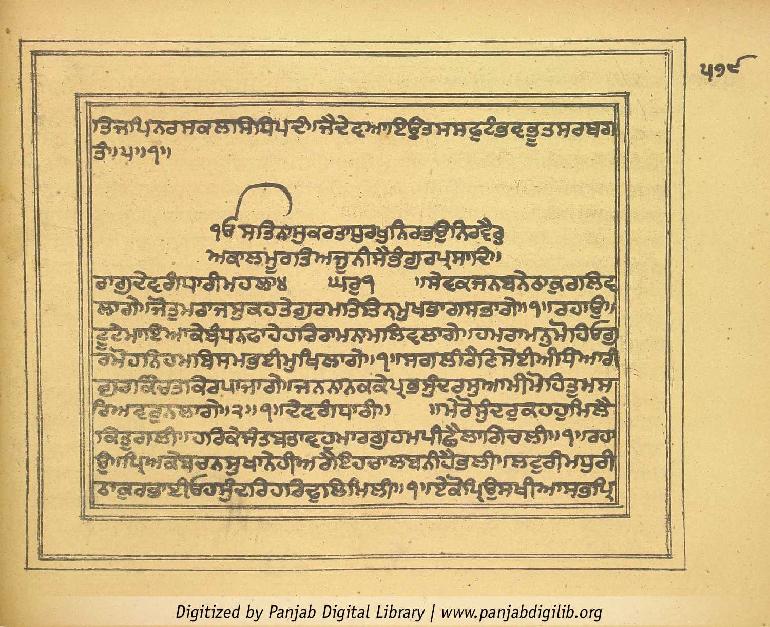 ੫੧੯
ਤਿਜਪਿਨਰਸਕਲਸਿਧਿਪਦੀ॥ਜੈਦੇਵਆਇਉਤਸਸਫੁਟੰਭਵਭੂਤਸਰਬਗ
ਤੰ॥੫॥੧॥
੧ਓ ਸਤਿਨਾਮੁਕਰਤਾਪੁਰਖੁਨਿਰਭਉਨਿਰਵੈਰੁ
ਅਕਾਲਮੂਰਤਿਅਜੂਨੀਸੈਭੰਗੁਰਪ੍ਰਸਾਦਿ॥
ਰਾਗੁਦੇਵਗੰਧਾਰੀਮਹਲਾ੪ ਘਰੁ੧ ॥ਸੇਵਕਜਨਬਨੇਠਾਕੁਰਲਿਵ
ਲਾਗੇ॥ਜੋਤੁਮਰਾਜਸੁਕਹਤੇਗੁਰਮਤਿਤਿਨਮੁਖਭਾਗਸਭਾਗੇ॥੧॥ਰਹਾਉ॥
ਟੂਟੇਮਾਇਆਕੇਬੰਧਨਫਾਹੇਹਰਿਰਾਮਨਾਮਲਿਵਲਾਗੇ॥ਹਮਰਾਮਨੁਮੋਹਿਓਗੁ
ਰਮੋਹਨਿਹਮਬਿਸਮਭਈਮੁਖਿਲਾਗੇ॥੧॥ਸਗਲੀਰੈਣਿਸੋਈਅੰਧਿਆਰੀ
ਗੁਰਕਿੰਚਤਕਿਰਪਾਜਾਗੇ॥ਜਨਨਾਨਕਕੇਪ੍ਰਭਸੁੰਦਰਸੁਆਮੀਮੋਹਿਤੁਮਸ
ਰਿਅਵਰੁਨਲਾਗੇ॥੨॥੧॥ਦੇਵਗੰਧਾਰੀ॥ ॥ਮੇਰੋਸੁੰਦਰੁਕਹਹੁਮਿਲੈ
ਕਿਤੁਗਲੀ॥ਹਰਿਕੇਸੰਤਬਤਾਵਹੁਮਾਰਗੁਹਮਪੀਛੈਲਾਗਿਚਲੀ॥੧॥ਰਹਾ
ਉ॥ਪ੍ਰਿਅਕੇਬਚਨਸੁਖਾਨੇਹੀਅਰੈਇਹਚਾਲਬਨੀਹੈਭਲੀ॥ਲਟੁਰੀਮਧੁਰੀ
ਠਾਕੁਰਭਾਈਓਹਸੁੰਦਰਿਹਰਿਢੁਲਿਮਿਲੀ॥੧॥ਏਕੋਪ੍ਰਿਉਸਖੀਆਸਭਪ੍ਰਿ
Digitized by Panjab Digital Library | www.panjabdigilib.org